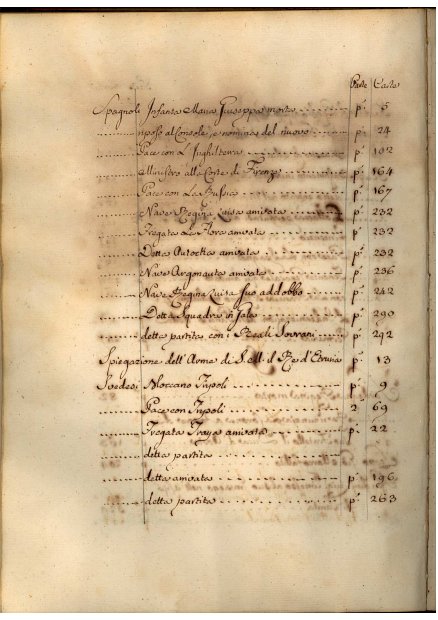 Parte Carte
Spagnoli Infanta Maria Giuseppa morta p.ª 5
riposo al Console, e nomina del nuovo p.ª 24
Pace con L'Inghilterra p.ª 102
Ministro alla Corte di Firenze p.ª 164
Pace con La Russia p.ª 167
Nave Regina Luisa arrivata p.ª 232
Fregata La Flora arrivata p.ª 232
Detta arrivata p.ª 232
Nave Argonauta arrivata p.ª 236
Nave Regina Luisa suo addobbo p.ª 242
Detta Squadra in p.ª 290
detta partita con i Reali Sovrani p.ª 292
Spiegazione dell'Arme di S. M. il Re d'Etruria p.ª 13
Svedesi Tripoli p.ª 9
Pace con Tripoli 2 69
Fregata arrivata p.ª 22
detta partita
detta arrivata p.ª 196
detta partita p.ª 263